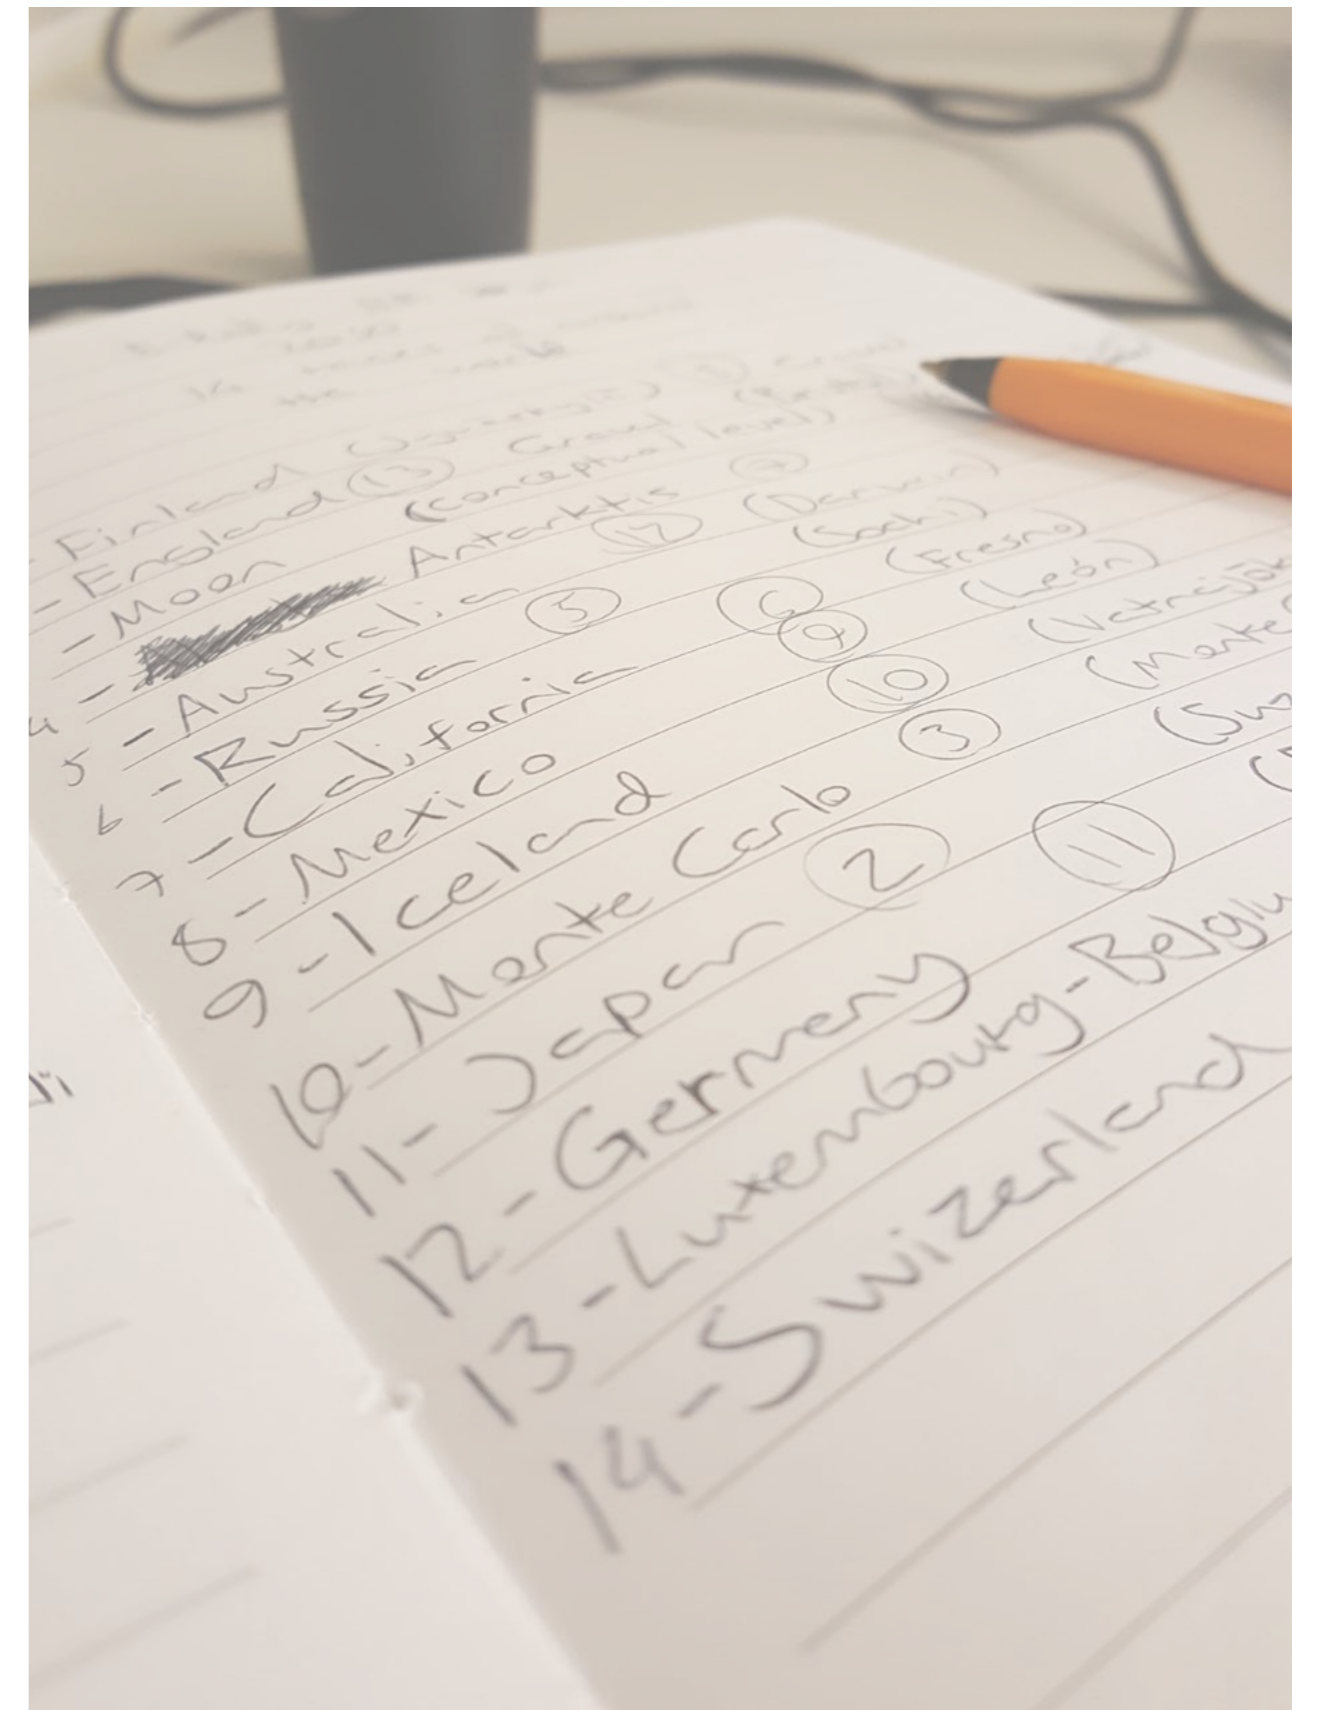 the world
Finland (Jyväskylä) 1
- England 13 Gravel
- Moon (conceptual level)
4 - Antarktis 7
5 - Australia 12 (Darwin)
6 - Russia 5 (Sochi)
7 - California 6 (Fresno)
8 - Mexico 9 (León)
9 - Iceland 10
10 - Monte Carlo 3 (Monte
11 - Japan 2 (Suz
12 - Germany 11 (
13 - Luxembourg - Belgiu
14 - Swizerland